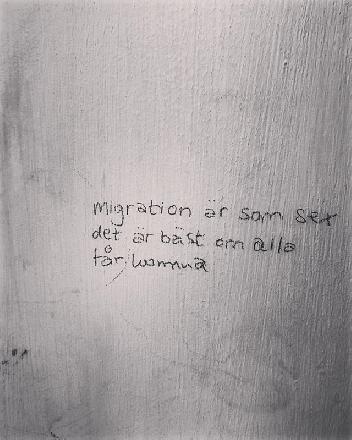 Migration är som sex
det är bäst om alla
får komma